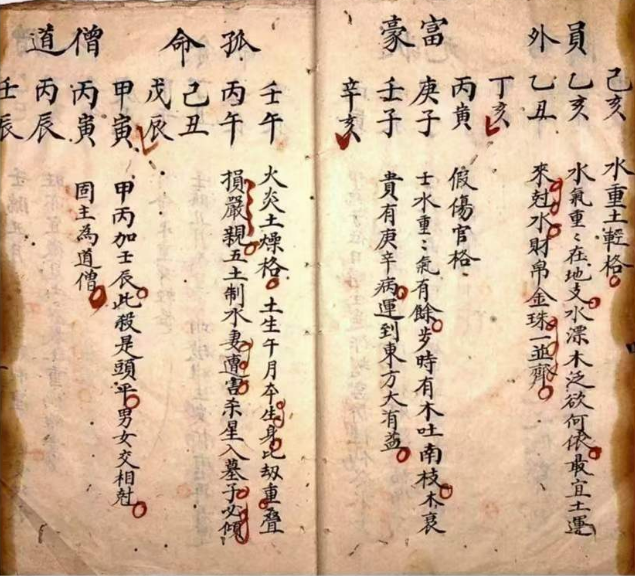 員外
己亥 水重土輕格
乙亥 水氣重々在地支水漂木泛欲何依最宜土運
乙丑 來尅水財帛金珠一並齊
丁亥
富豪
丙寅 假傷官格
庚子 壬水重々氣有餘步時有木吐南枝木衰
壬子 貴有庚辛病運到東方大有益
辛亥
孤命
壬午 火炎土燥格 土生午月夲生身比刼重叠
丙午 損嚴親五土制水妻遭害杀星入墓子必傾
己丑
戊辰
僧道
甲寅 甲丙加壬辰此殺是頭平男女交相尅
丙寅 固主為道僧
丙辰
壬辰